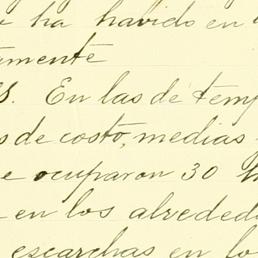 ha havido en
amente
s. En las de temp
s de costo, medias
e ocuparon 30
en los alrededo
escarchas en lo